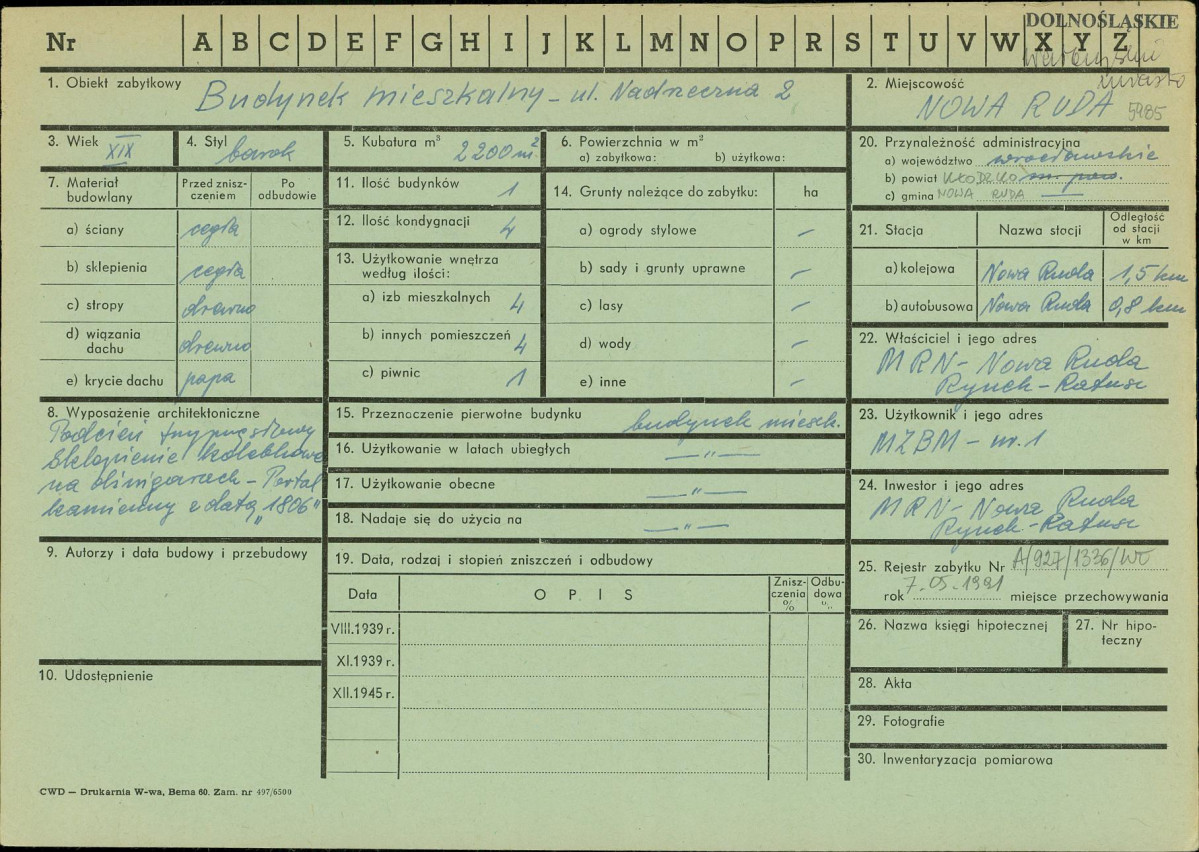 DOLNOŚLĄSKIE
Nr A B C D E F G H I J K L M N O P R S T U V W X Y Z
miasto
1. Obiekt zabytkowy Budynek mieszkalny – ul. Nadrzeczna 2
2. Miejscowość
NOWA RUDA 5985
3. Wiek XIX
4. Styl barok
5. Kubatura m³ 2200 m²
6. Powierzchnia w m²
a) zabytkowa: b) użytkowa:
7. Materiał budowlany
Przed zniszczeniem
Po odbudowie
a) ściany cegła
b) sklepienia cegła
c) stropy drewno
d) wiązania dachu drewno
e) krycie dachu papa
8. Wyposażenie architektoniczne
Podcień trzyprzęsłowy
Sklepienie kolebkowe
na
kamienny z datą „1806"
– Portal
9. Autorzy i data budowy i przebudowy
10. Udostępnienie
11. Ilość budynków 1
12. Ilość kondygnacji 4
13. Użytkowanie wnętrza według ilości:
a) izb mieszkalnych 4
b) innych pomieszczeń 4
c) piwnic 1
14. Grunty należące do zabytku: ha
a) ogrody stylowe –
b) sady i grunty uprawne –
c) lasy –
d) wody –
e) inne –
15. Przeznaczenie pierwotne budynku budynek mieszk.
16. Użytkowanie w latach ubiegłych –"–
17. Użytkowanie obecne –"–
18. Nadaje się do użycia na –"–
19. Data, rodzaj i stopień zniszczeń i odbudowy
Data OPIS Zniszczenia % Odbudowa %
VIII.1939 r.
XI.1939 r.
XII.1945 r.
20. Przynależność administracyjna
a) województwo wrocławskie
b) powiat KŁODZKO m. pow.
c) gmina NOWA RUDA —
21. Stacja Nazwa stocji Odległość od stacji w km
a) kolejowa Nowa Ruda 1,5 km
b) autobusowa Nowa Ruda 0,8 km
22. Właściciel i jego adres
MRN – Nowa Ruda
Rynek – Ratusz
23. Użytkownik i jego adres
MZBM – nr. 1
24. Inwestor i jego adres
MRN – Nowa Ruda
Rynek – Ratusz
25. Rejestr zabytku Nr A/927/1336/WŁ
rok 7.05.1991 miejsce przechowywania
26. Nazwa księgi hipotecznej
27. Nr hipoteczny
28. Akta
29. Fotografie
30. Inwentaryzacja pomiarowa
CWD — Drukarnia W-wa, Bema 60. Zam. nr 497/6500